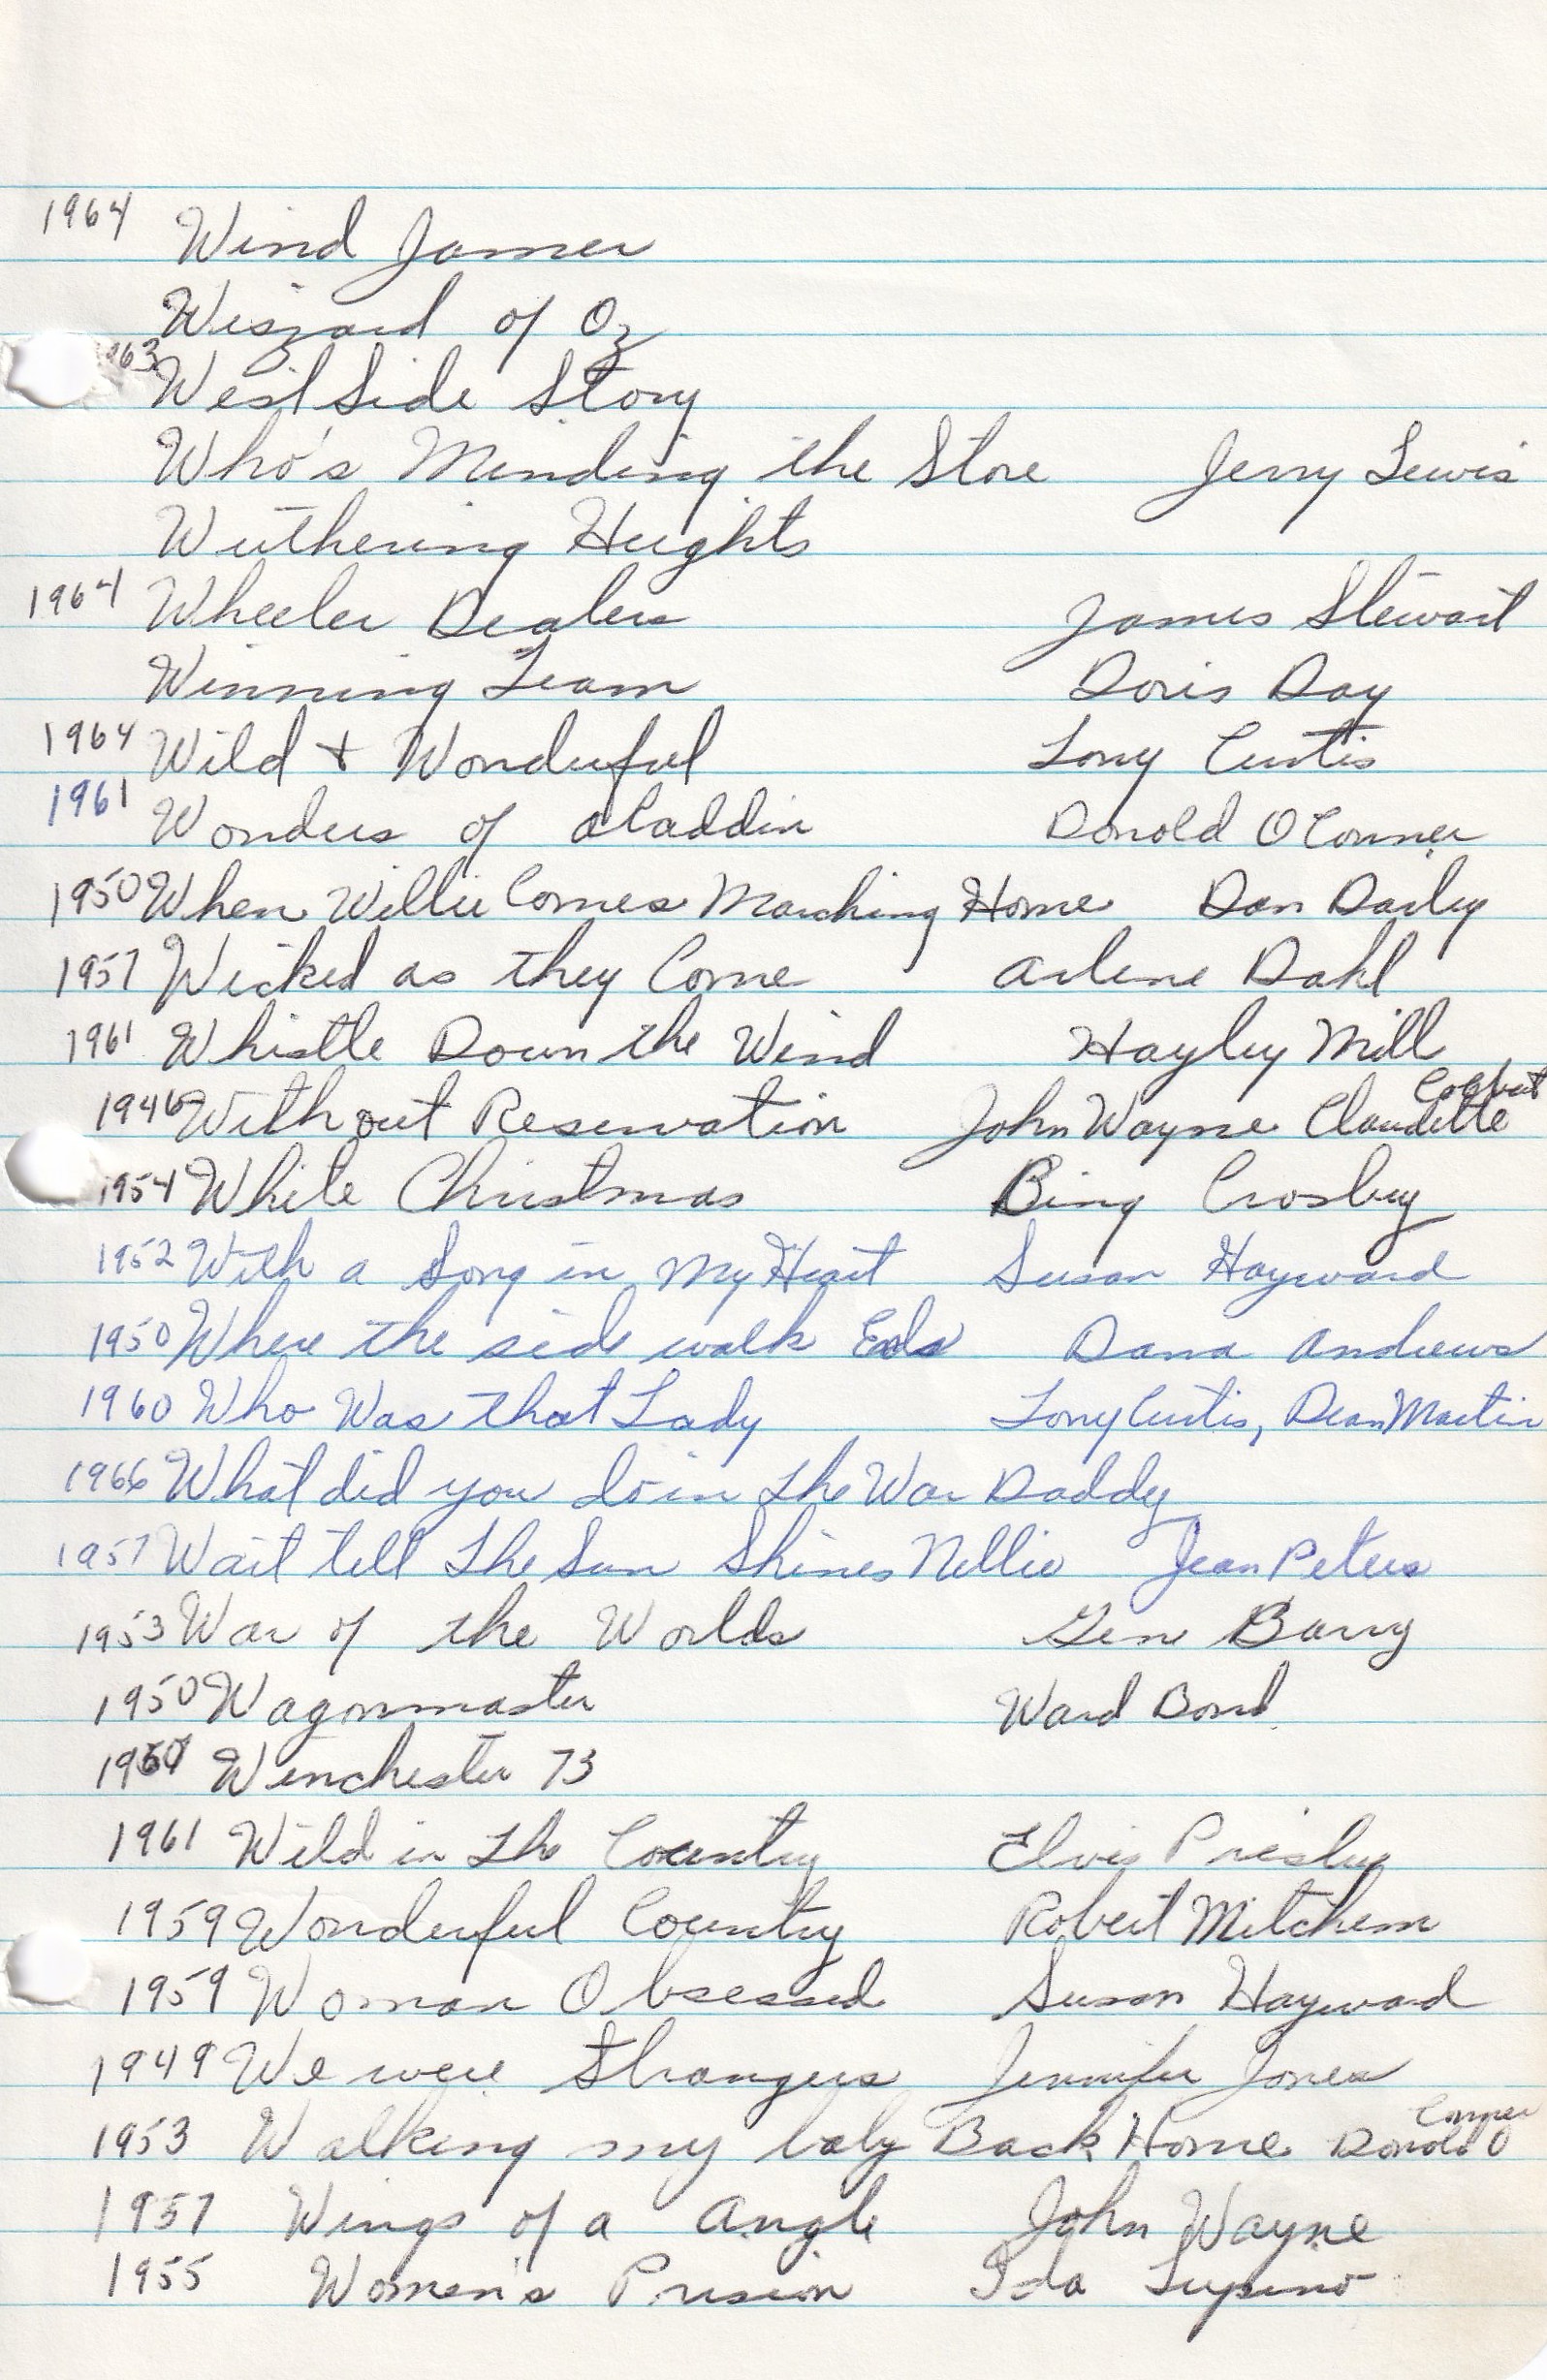 1964 Wind Jamer
Wiszard of Oz
963 West Side Story
Who's Minding the Store Jerry Lewis
Wuthering Heights
1964 Wheeler Dealers James Stewart
Winning Team Doris Day
1964 Wild + Wonderful Tony Curtis
1961 Wonders of Aladdin Donold O Conner
1950 When Willie Comes Marching Home Dan Daily
1957 Wicked as they Come Arlene Dahl
1961 Whistle Down the Wind Hayley Mill
1946 Without Reservation John Wayne Claudette Colbert
1954 White Christmas Bing Crosby
1952 With a Song in My Heart Susan Hayward
1950 Where the side walk Eds Dana Andrews
1960 Who Was that Lady Tony Curtis, Dean Martin
1966 What did you do in the War Daddy
1957 Wait till the Sun Shines Nellie Jean Peters
1953 War of the Worlds Gene Barry
1950 Wagonmaster Ward Bond
Winchester 73
1961 Wild in the Country Elvis Presley
1959 Wonderful Country Robert Mitchem
1959 Woman Obsessed Susan Hayward
1949 We were Strangers Jennifer Jones
1953 Walking my baby Back Home Donald O Conner
1957 Wings of a Angle John Wayne
1955 Women's Prision Ida Lupino